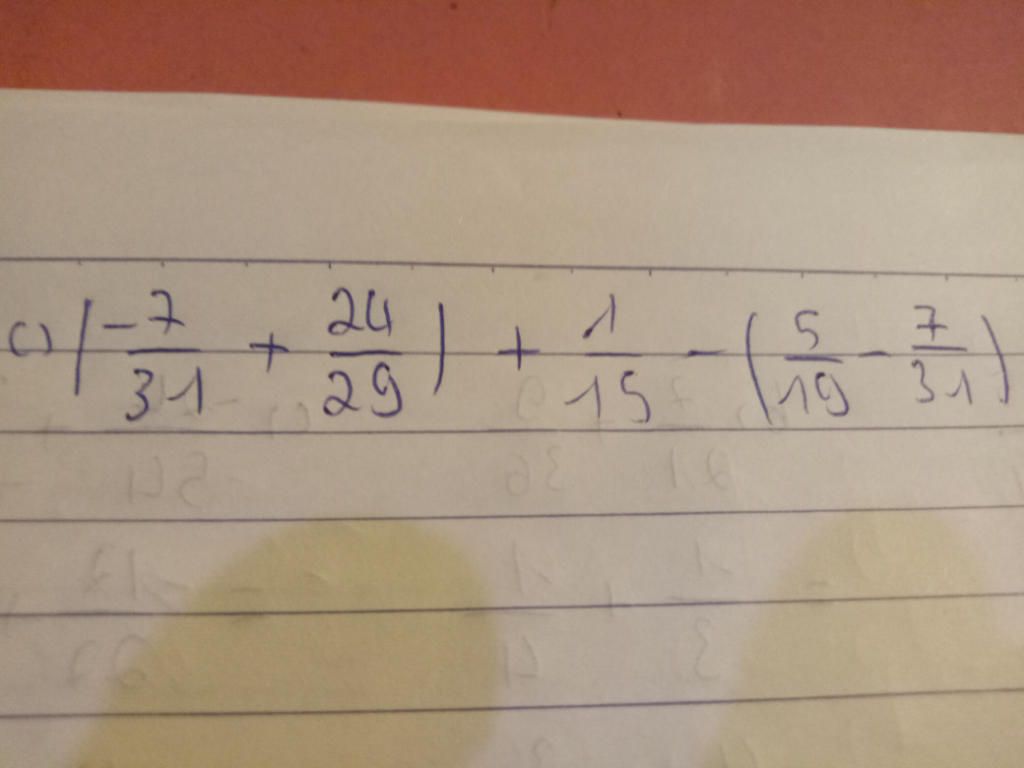 c) (-7/31 + 24/29) + 1/15 - (5/19 - 7/31)